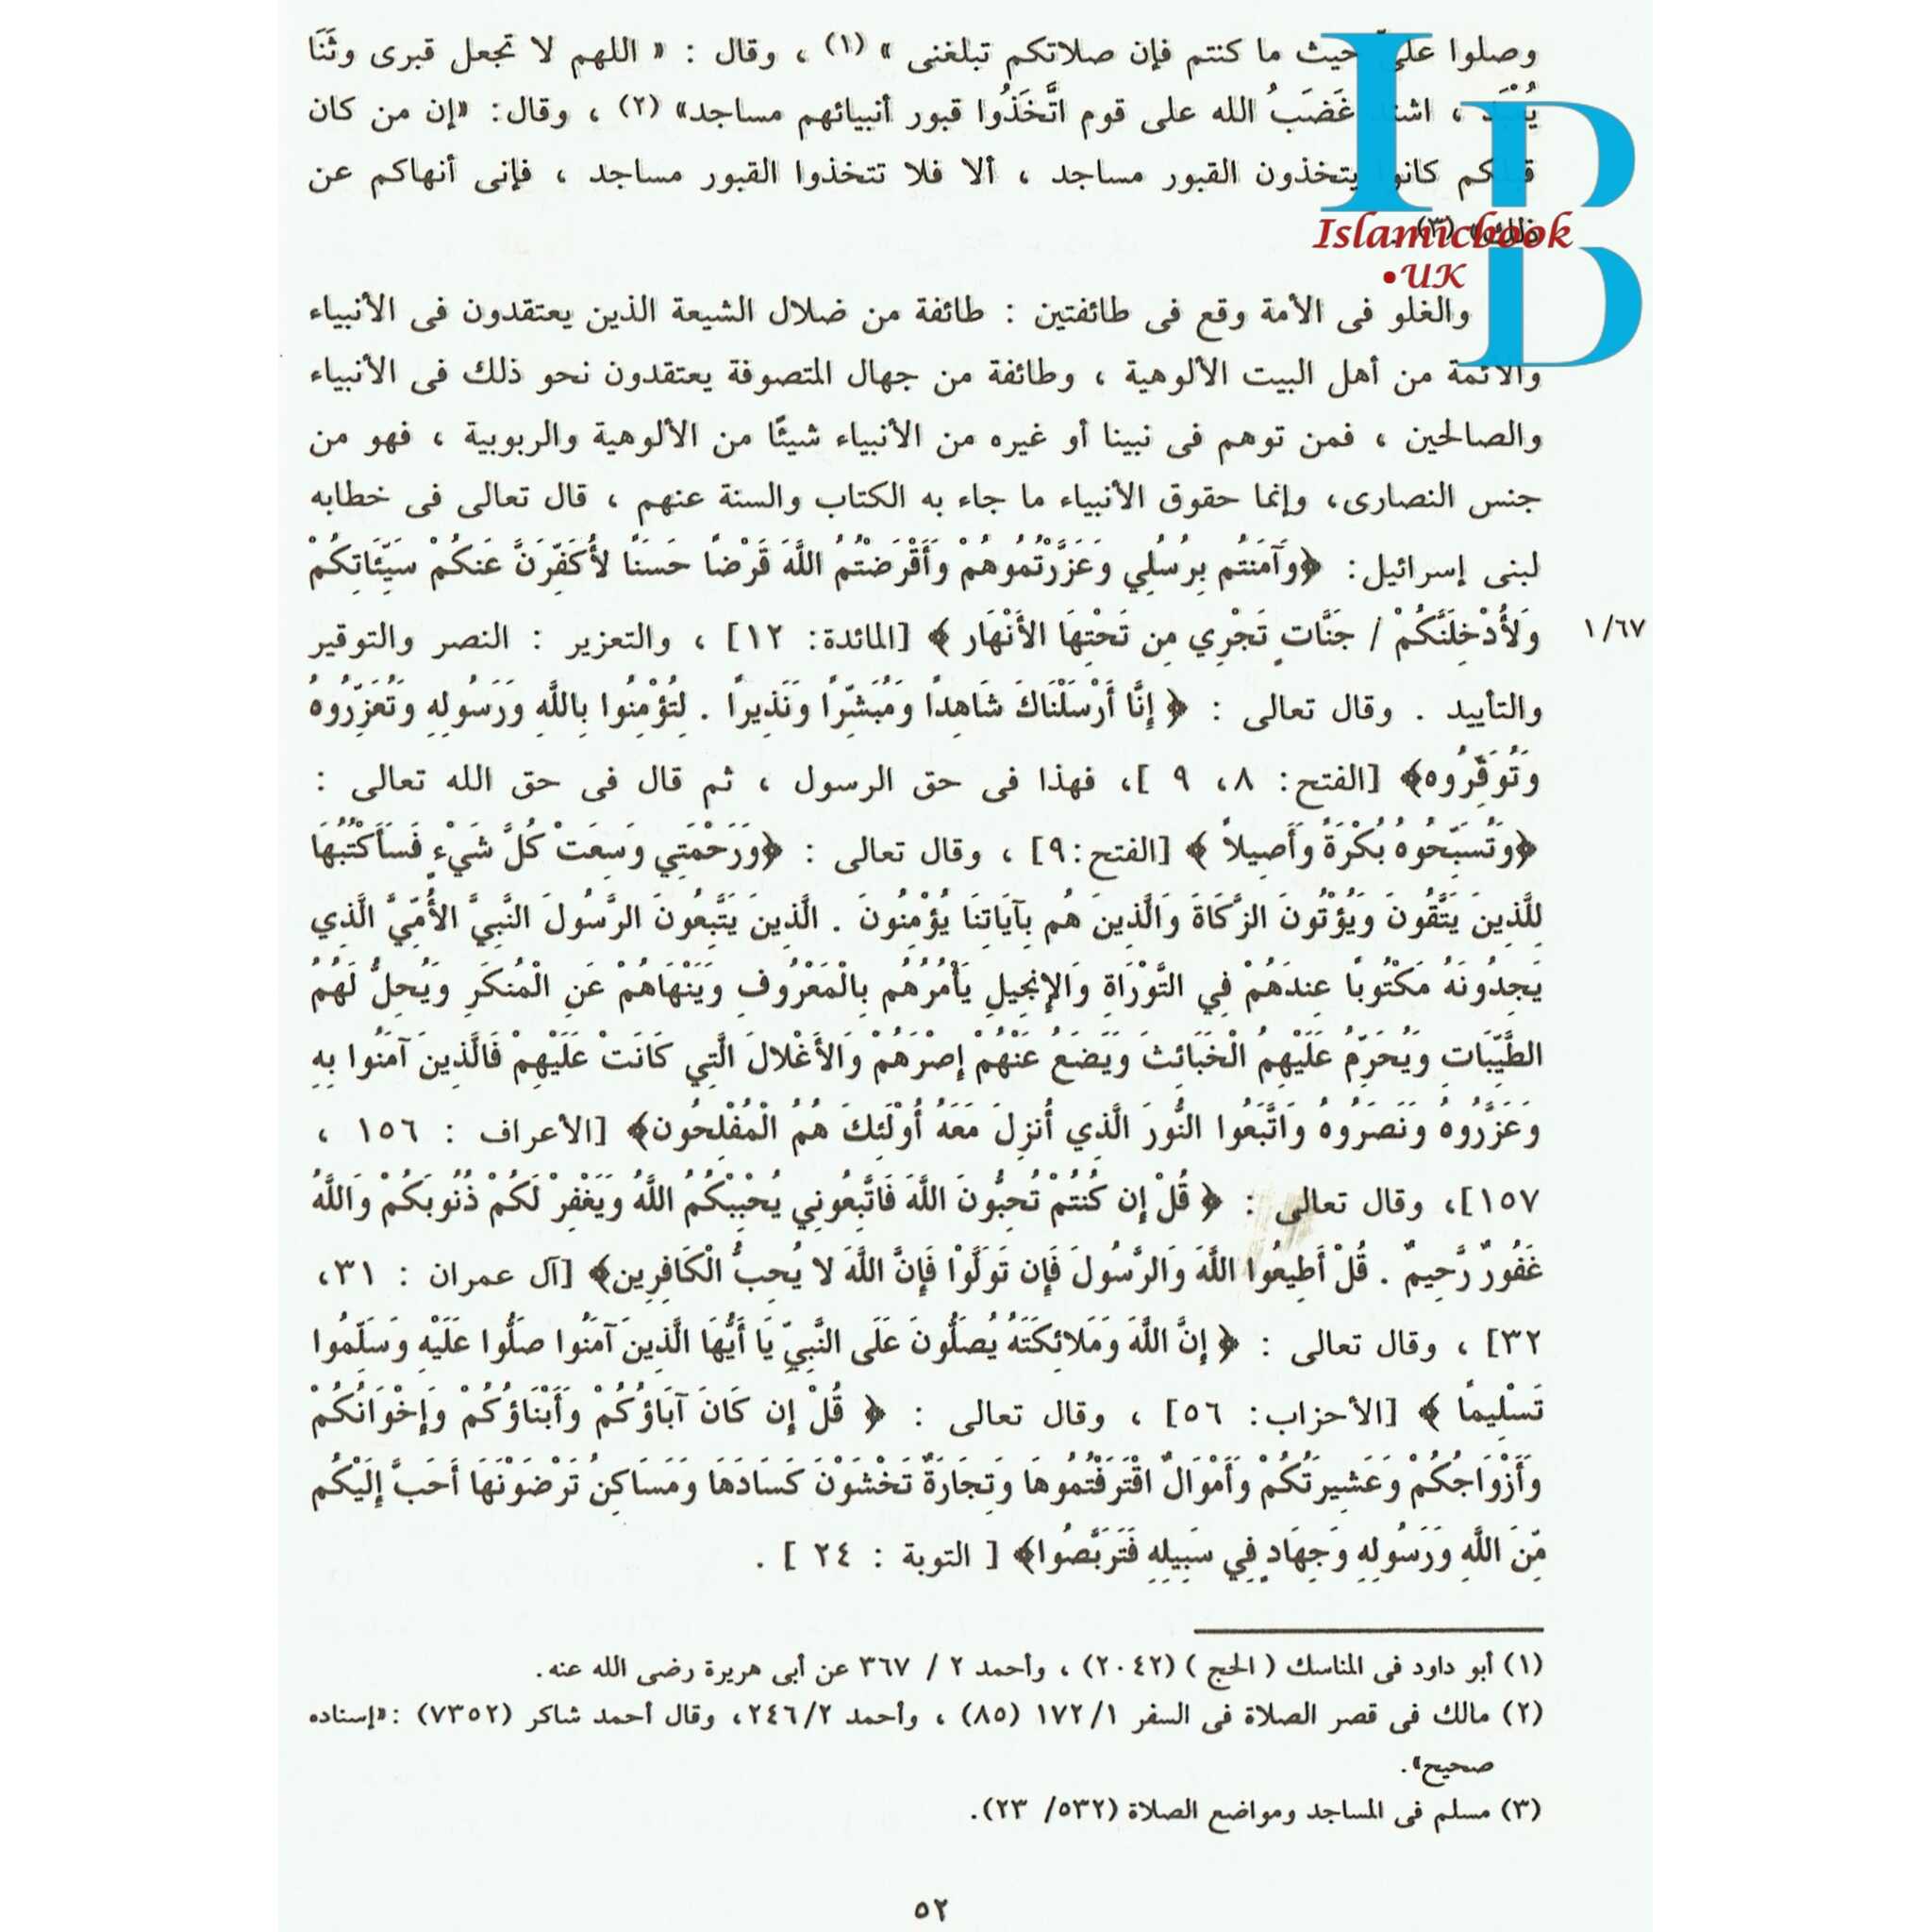 وصلوا علىَّ حيث ما كنتم فإن صلاتكم تبلغنى » (١) ، وقال : « اللهم لا تجعل قبرى وثَنَا
يُعْبَد ، اشتد غَضَبُ الله على قوم اتَّخَذُوا قبور أنبيائهم مساجد» (٢) ، وقال: «إن من كان
قبلكم كانوا يتخذون القبور مساجد ، ألا فلا تتخذوا القبور مساجد ، فإنى أنهاكم عن
ذلك» (٣) .
IBD
Islamicbook
•UK
والغلو فى الأمة وقع فى طائفتين : طائفة من ضلال الشيعة الذين يعتقدون فى الأنبياء
والأئمة من أهل البيت الألوهية ، وطائفة من جهال المتصوفة يعتقدون نحو ذلك فى الأنبياء
والصالحين ، فمن توهم فى نبينا أو غيره من الأنبياء شيئًا من الألوهية والربوبية ، فهو من
جنس النصارى، وإنما حقوق الأنبياء ما جاء به الكتاب والسنة عنهم ، قال تعالى فى خطابه
لبنى إسرائيل: ﴿وَآمَنتُم بِرُسُلِي وَعَزَّرْتُمُوهُمْ وَأَقْرَضْتُمُ اللَّهَ قَرْضًا حَسَنًا لأُكَفِّرَنَّ عَنكُمْ سَيِّئَاتِكُمْ
وَلأُدْخِلَنَّكُمْ / جَنَّاتٍ تَجْرِي مِن تَحْتِهَا الأَنْهَار ﴾ [المائدة: ١٢] ، والتعزير : النصر والتوقير
١/٦٧
والتأييد . وقال تعالى : ﴿ إِنَّا أَرْسَلْنَاكَ شَاهِدًا وَمُبَشِّرًا وَنَذِيرًا . لِتُؤْمِنُوا بِاللَّهِ وَرَسُولِهِ وَتُعَزِّرُوهُ
وَتُوَقِّرُوه﴾ [الفتح: ٨، ٩ ]، فهذا فى حق الرسول ، ثم قال فى حق الله تعالى :
﴿وَتُسَبِّحُوهُ بُكْرَةً وَأَصِيلاً ﴾ [الفتح:٩] ، وقال تعالى : ﴿وَرَحْمَتِي وَسِعَتْ كُلَّ شَيْءٍ فَسَأَكْتُبُهَا
لِلَّذِينَ يَتَّقُونَ وَيُؤْتُونَ الزَّكَاةَ وَالَّذِينَ هُم بِآيَاتِنَا يُؤْمِنُونَ . الَّذِينَ يَتَّبِعُونَ الرَّسُولَ النَّبِيَّ الأُمِّيَّ الَّذِي
يَجِدُونَهُ مَكْتُوبًا عِندَهُمْ فِي التَّوْرَاةِ وَالإِنجِيلِ يَأْمُرُهُم بِالْمَعْرُوفِ وَيَنْهَاهُمْ عَنِ الْمُنكَرِ وَيُحِلُّ لَهُمُ
الطَّيِّبَاتِ وَيُحَرِّمُ عَلَيْهِمُ الْخَبَائِثَ وَيَضَعُ عَنْهُمْ إِصْرَهُمْ وَالأَغْلالَ الَّتِي كَانَتْ عَلَيْهِمْ فَالَّذِينَ آمَنُوا بِهِ
وَعَزَّرُوهُ وَنَصَرُوهُ وَاتَّبَعُوا النُّورَ الَّذِي أُنزِلَ مَعَهُ أُوْلَئِكَ هُمُ الْمُفْلِحُون﴾ [الأعراف : ١٥٦ ،
١٥٧]، وقال تعالى : ﴿ قُلْ إِن كُنتُمْ تُحِبُّونَ اللَّهَ فَاتَّبِعُونِي يُحْبِبْكُمُ اللَّهُ وَيَغْفِرْ لَكُمْ ذُنُوبَكُمْ وَاللَّهُ
غَفُورٌ رَّحِيمٌ . قُلْ أَطِيعُوا اللَّهَ وَالرَّسُولَ فَإِن تَوَلَّوْا فَإِنَّ اللَّهَ لا يُحِبُّ الْكَافِرِين﴾ [آل عمران : ٣١،
٣٢] ، وقال تعالى : ﴿ إِنَّ اللَّهَ وَمَلائِكَتَهُ يُصَلُّونَ عَلَى النَّبِيِّ يَا أَيُّهَا الَّذِينَ آمَنُوا صَلُّوا عَلَيْهِ وَسَلِّمُوا
تَسْلِيمًا ﴾ [الأحزاب: ٥٦] ، وقال تعالى : ﴿ قُلْ إِن كَانَ آبَاؤُكُمْ وَأَبْنَاؤُكُمْ وَإِخْوَانُكُمْ
وَأَزْوَاجُكُمْ وَعَشِيرَتُكُمْ وَأَمْوَالٌ اقْتَرَفْتُمُوهَا وَتِجَارَةٌ تَخْشَوْنَ كَسَادَهَا وَمَسَاكِنُ تَرْضَوْنَهَا أَحَبَّ إِلَيْكُم
مِّنَ اللَّهِ وَرَسُولِهِ وَجِهَادٍ فِي سَبِيلِهِ فَتَرَبَّصُوا﴾ [ التوبة : ٢٤ ] .
(١) أبو داود فى المناسك ( الحج ) (٢٠٤٢) ، وأحمد ٢ / ٣٦٧ عن أبى هريرة رضى الله عنه.
(٢) مالك فى قصر الصلاة فى السفر ١٧٢/١ (٨٥) ، وأحمد ٢٤٦/٢، وقال أحمد شاكر (٧٣٥٢) :«إسناده
صحيح».
(٣) مسلم فى المساجد ومواضع الصلاة (٥٣٢/ ٢٣).
٥٢